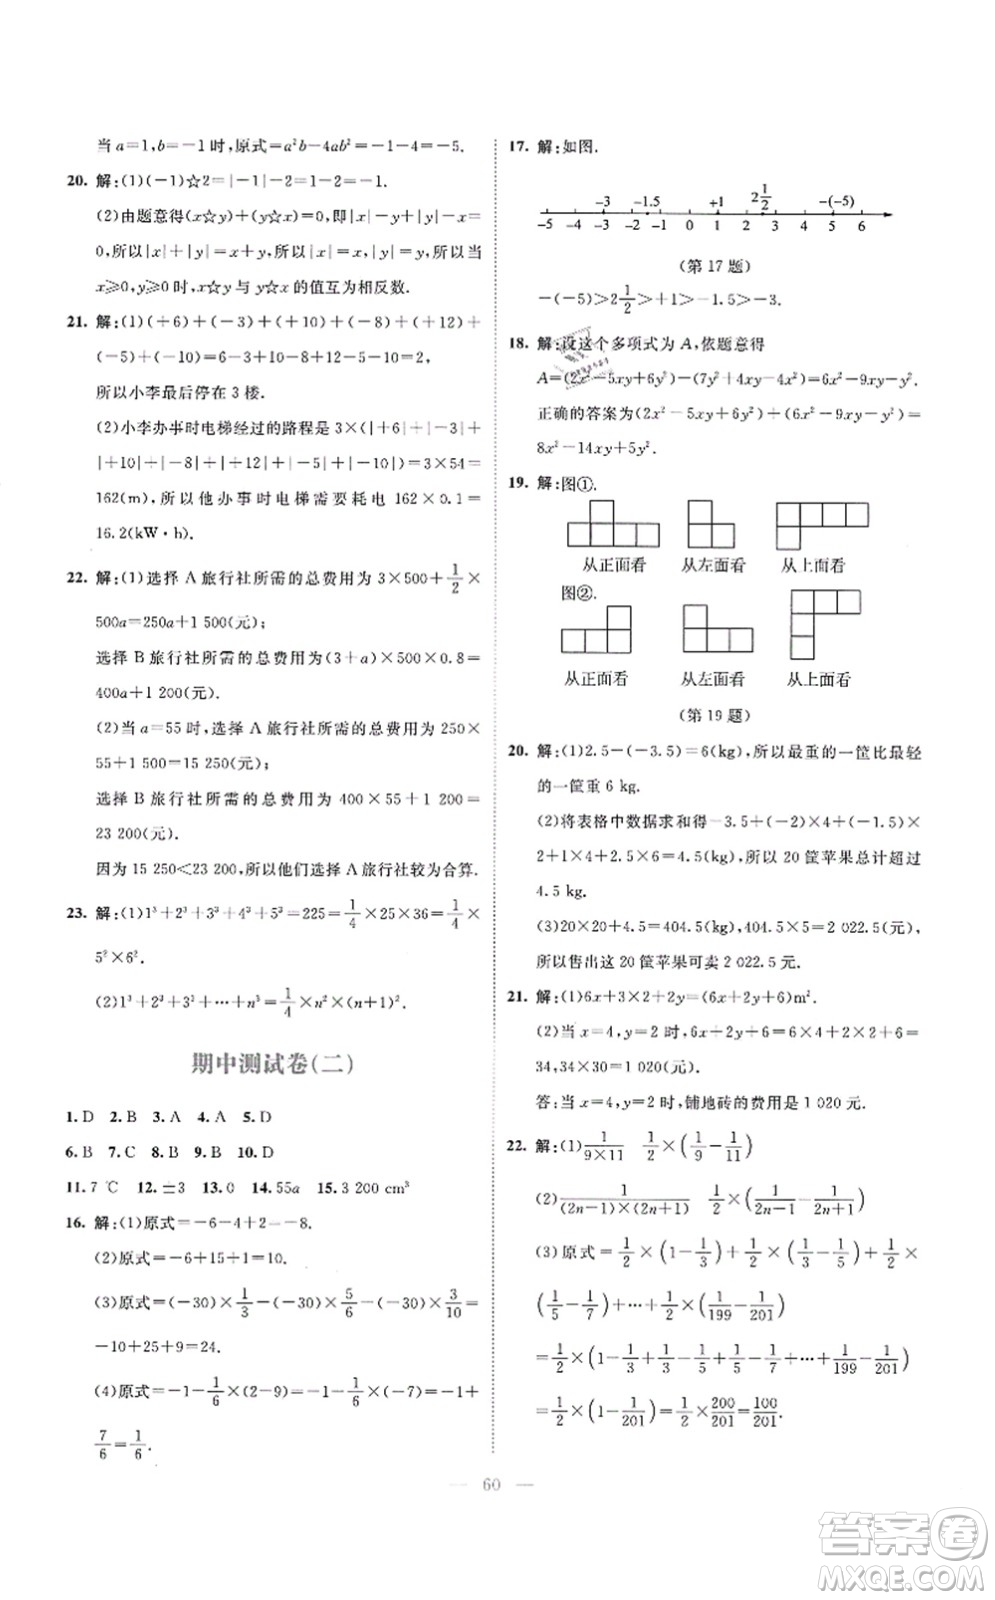 当 a=1,b=-1 时,原式=a²b-4ab²=-1-4=-5.
20. 解:(1)(-1)☆2=|-1|-2=1-2=-1.
(2)由题意得(x☆y)+(y☆x)=0,即|x|-y+|y|-x=0,
所以|x|+|y|=x+y,所以|x|=x,|y|=y,所以当
x⩾0,y⩾0 时,x☆y 与 y☆x 的值互为相反数.
21. 解:(1)(+6)+(-3)+(+10)+(-8)+(+12)+
(-5)+(-10)=6-3+10-8+12-5-10=2,
所以小李最后停在 3 楼.
(2)小李办事时电梯经过的路程是 3×(|+6|+|-3|+
|+10|+|-8|+|+12|+|-5|+|-10|)=3×54=
162(m),所以他办事时电梯需要耗电 162×0.1=
16.2(kW·h).
22. 解:(1)选择 A 旅行社所需的总费用为 3×500+1/2×
500a=250a+1 500(元);
选择 B 旅行社所需的总费用为(3+a)×500×0.8=
400a+1 200(元).
(2)当 a=55 时,选择 A 旅行社所需的总费用为 250×
55+1 500=15 250(元);
选择 B 旅行社所需的总费用为 400×55+1 200=
23 200(元).
因为 15 250<23 200,所以他们选择 A 旅行社较为合算.
23. 解:(1)1³+2³+3³+4³+5³=225=1/4×25×36=1/4×
5²×6².
(2)1³+2³+3³+…+n³=1/4×n²×(n+1)².
期中测试卷(二)
1. D 2. B 3. A 4. A 5. D
6. B 7. C 8. B 9. B 10. D
11. 7 ℃ 12. ±3 13. 0 14. 55a 15. 3 200 cm³
16. 解:(1)原式=-6-4+2=-8.
(2)原式=-6+15+1=10.
(3)原式=(-30)×1/3-(-30)×5/6+(-30)×3/10=
-10+25+9=24.
(4)原式=-1-1/6×(2-9)=-1-1/6×(-7)=-1+
7/6=1/6.
17. 解:如图.
-3 -1.5 +1 2 1/2 -(-5)
-5 -4 -3 -2 -1 0 1 2 3 4 5 6
(第 17 题)
-(-5)>2 1/2>+1>-1.5>-3.
18. 解:设这个多项式为 A,依题意得
A=(2x²-5xy+6y²)-(7y²+4xy-4x²)=6x²-9xy-y².
正确的答案为(2x²-5xy+6y²)+(6x²-9xy-y²)=
8x²-14xy+5y².
19. 解:图①.
从正面看 从左面看 从上面看
图②.
从正面看 从左面看 从上面看
(第 19 题)
20. 解:(1)2.5-(-3.5)=6(kg),所以最重的一筐比最轻
的一筐重 6 kg.
(2)将表格中数据求和得-3.5+(-2)×4+(-1.5)×
2+1×2+2.5×6=4.5(kg),所以 20 筐苹果总计超过
4.5 kg.
(3)20×20+4.5=404.5(kg),404.5×5=2 022.5(元),
所以售出这 20 筐苹果可卖 2 022.5 元.
21. 解:(1)6x+3×2+2y=(6x+2y+6)m².
(2)当 x=4,y=2 时,6x+2y+6=6×4+2×2+6=
34,34×30=1 020(元).
答:当 x=4,y=2 时,铺地砖的费用为 1 020 元.
22. 解:(1)1/(9×11) 1/2×(1/9-1/11)
(2)1/((2n-1)×(2n+1)) 1/2×(1/(2n-1)-1/(2n+1))
(3)原式=1/2×(1-1/3)+1/2×(1/3-1/5)+1/2×
(1/5-1/7)+…+1/2×(1/199-1/201)
=1/2×(1-1/3+1/3-1/5+1/5-1/7+…+1/199-1/201)
=1/2×(1-1/201)=1/2×200/201=100/201.
— 60 —
答案卷
MXQE.COM